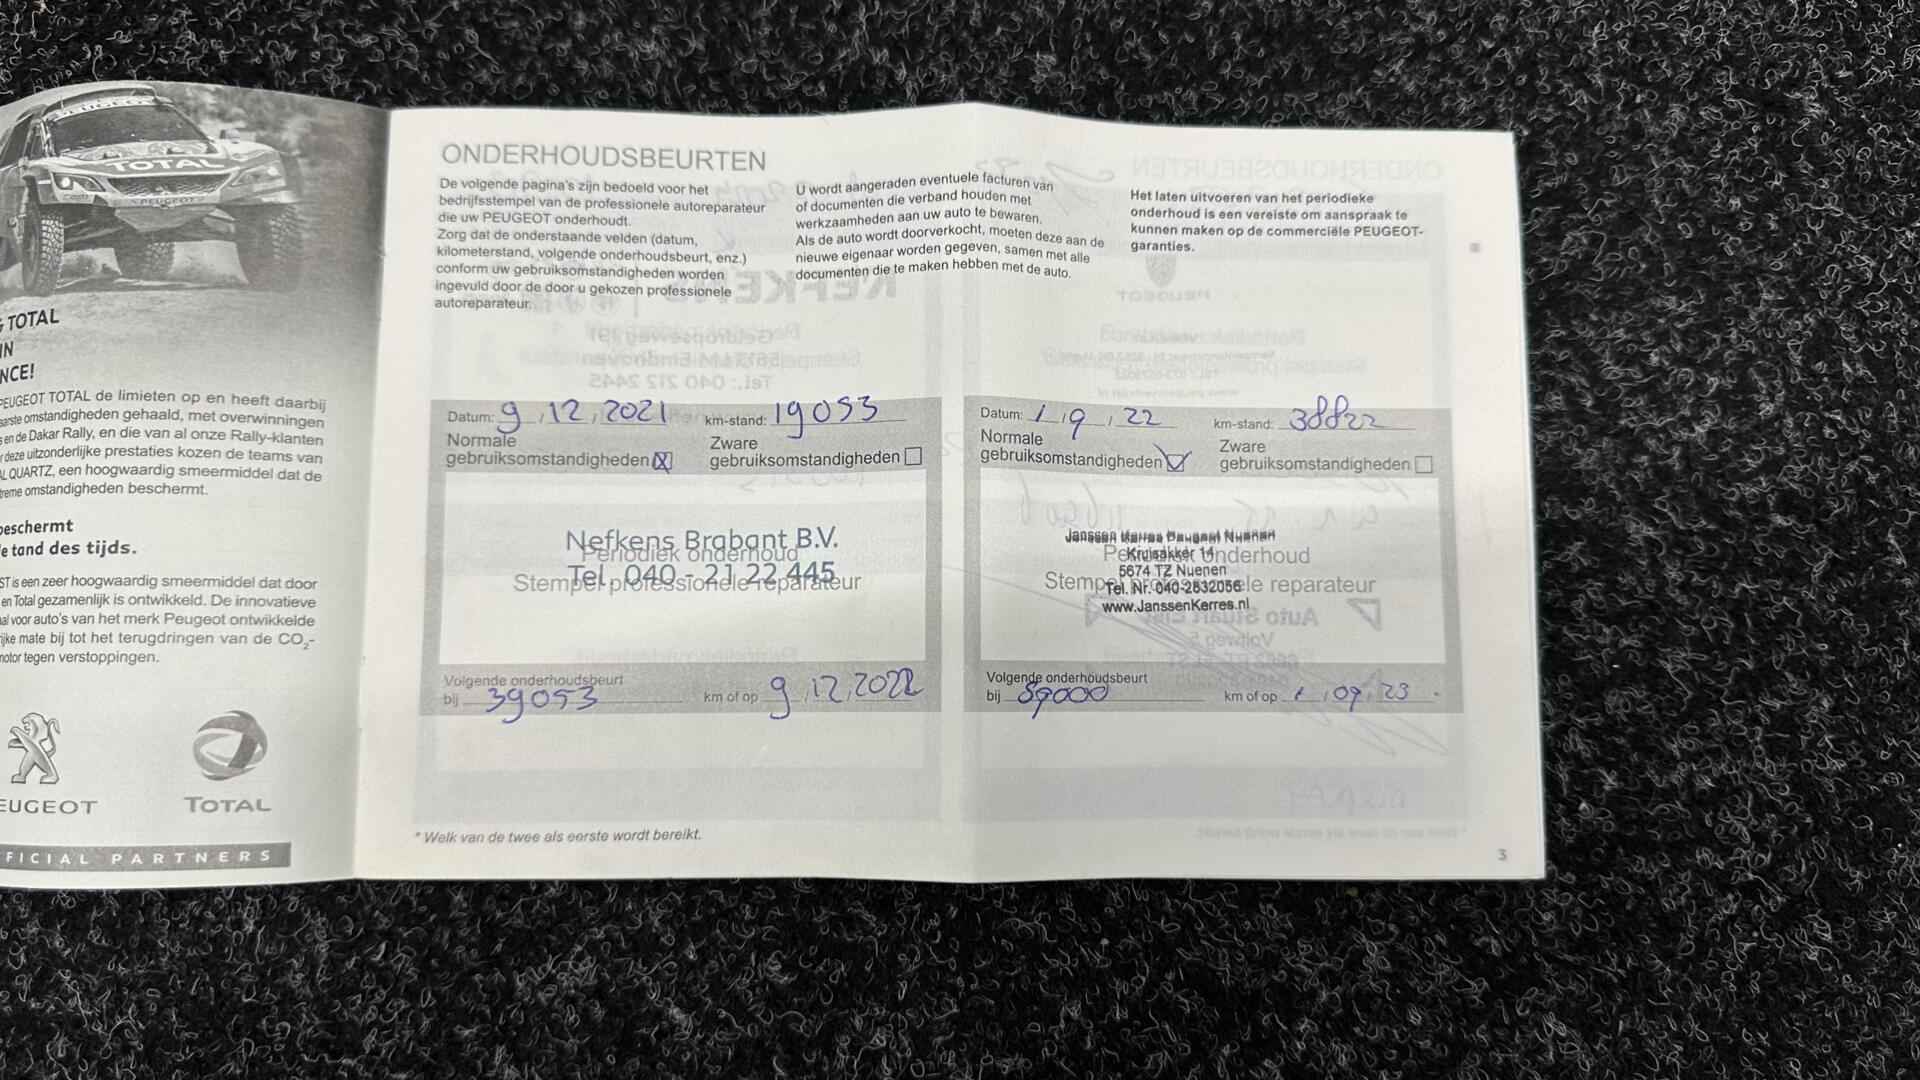 PEUGEOT
TOTAL
PEUGEOT
TOTAL
IN
NCE!
PEUGEOT TOTAL de limieten op en heeft daarbij
omstandigheden gehaald, met overwinningen
en de Dakar Rally, en die van al onze Rally-klanten
deze uitzonderlijke prestaties kozen de teams van
QUARTZ, een hoogwaardig smeermiddel dat de
omstandigheden beschermt.
beschermt
e tand des tijds.
ST is een zeer hoogwaardig smeermiddel dat door
en Total gezamenlijk is ontwikkeld. De innovatieve
voor auto's van het merk Peugeot ontwikkelde
mate bij tot het terugdringen van de CO₂-
motor tegen verstoppingen.
EUGEOT
TOTAL
FICIAL PARTNERS
ONDERHOUDSBEURTEN
De volgende pagina's zijn bedoeld voor het
bedrijfsstempel van de professionele autoreparateur
die uw PEUGEOT onderhoudt.
Zorg dat de onderstaande velden (datum,
kilometerstand, volgende onderhoudsbeurt, enz.)
conform uw gebruiksomstandigheden worden
ingevuld door de door u gekozen professionele
autoreparateur.
U wordt aangeraden eventuele facturen van
of documenten die verband houden met
werkzaamheden aan uw auto te bewaren.
Als de auto wordt doorverkocht, moeten deze aan de
nieuwe eigenaar worden gegeven, samen met alle
documenten die te maken hebben met de auto.
Het laten uitvoeren van het periodieke
onderhoud is een vereiste om aanspraak te
kunnen maken op de commerciële PEUGEOT-
garanties.
Datum: 9, 12, 2021 km-stand: 19053
Normale
gebruiksomstandigheden
Zware
gebruiksomstandigheden
Nefkens Brabant B.V.
Periodiek onderhoud
Tel. 040 - 21 22 445
Stempel professionele reparateur
Volgende onderhoudsbeurt
bij 39053 km of op 9, 12, 2022
Datum: 1, 9, 22 km-stand: 38822
Normale
gebruiksomstandigheden
Zware
gebruiksomstandigheden
Janssen Kerres Peugeot Nuenen
Periodiek onderhoud
Kruisakker 14
5674 TZ Nuenen
Stempel professionele reparateur
Tel. Nr. 040-2832056
www.JanssenKerres.nl
Volgende onderhoudsbeurt
bij 59000 km of op 1, 09, 23
* Welk van de twee als eerste wordt bereikt.
3